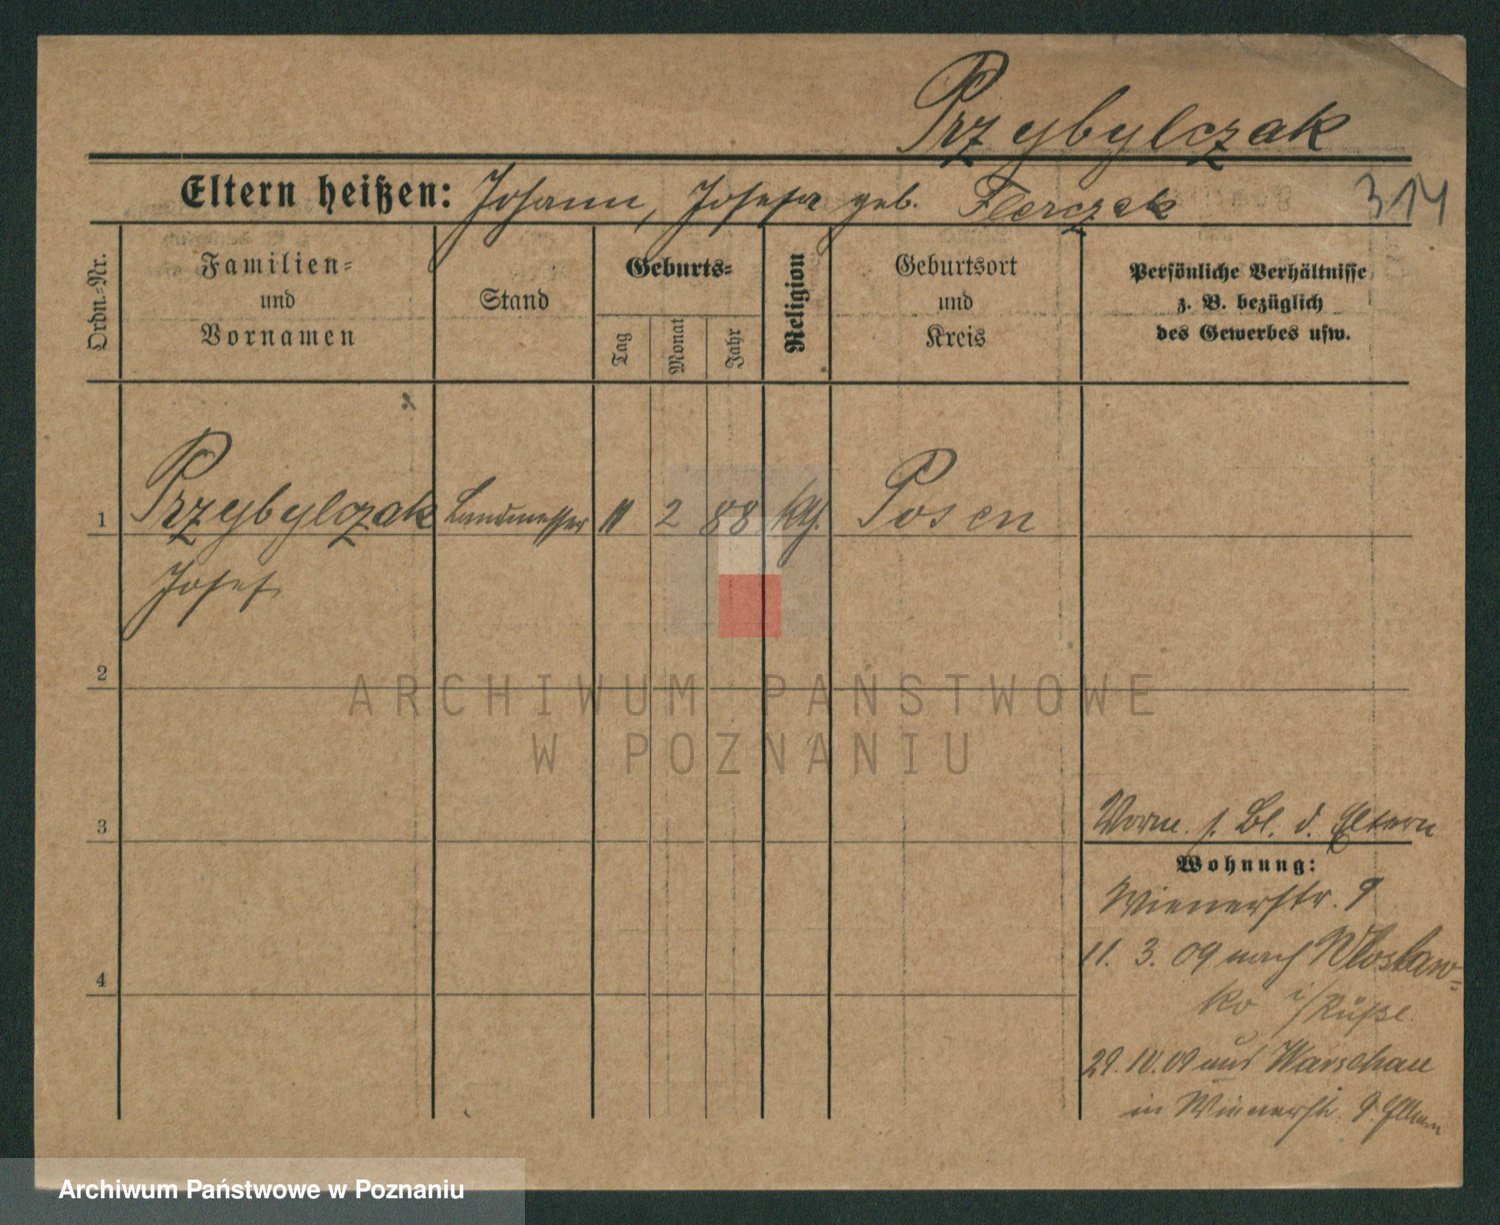 Przybylczak
Eltern heißen: Johann, Josefa geb. Florczak
314
Ordn.-Nr.
Familien-
und
Vornamen
Stand
Geburts-
Tag
Monat
Jahr
Religion
Geburtsort
und
Kreis
Persönliche Verhältnisse
z. B. bezüglich
des Gewerbes usw.
1 Przybylczak Landmesser 11 2 88 kth. Posen
Josef
2
3
Vorm. s. Bl. d. Eltern
Wohnung:
Wienerstr. 9
11. 3. 09 nach Wloslaw-
ko i/Rußl.
4
29. 10. 09 aus Warschau
in Wienerstr. 9. Eltern
ARCHIWUM PAŃSTWOWE
W POZNANIU
Archiwum Państwowe w Poznaniu